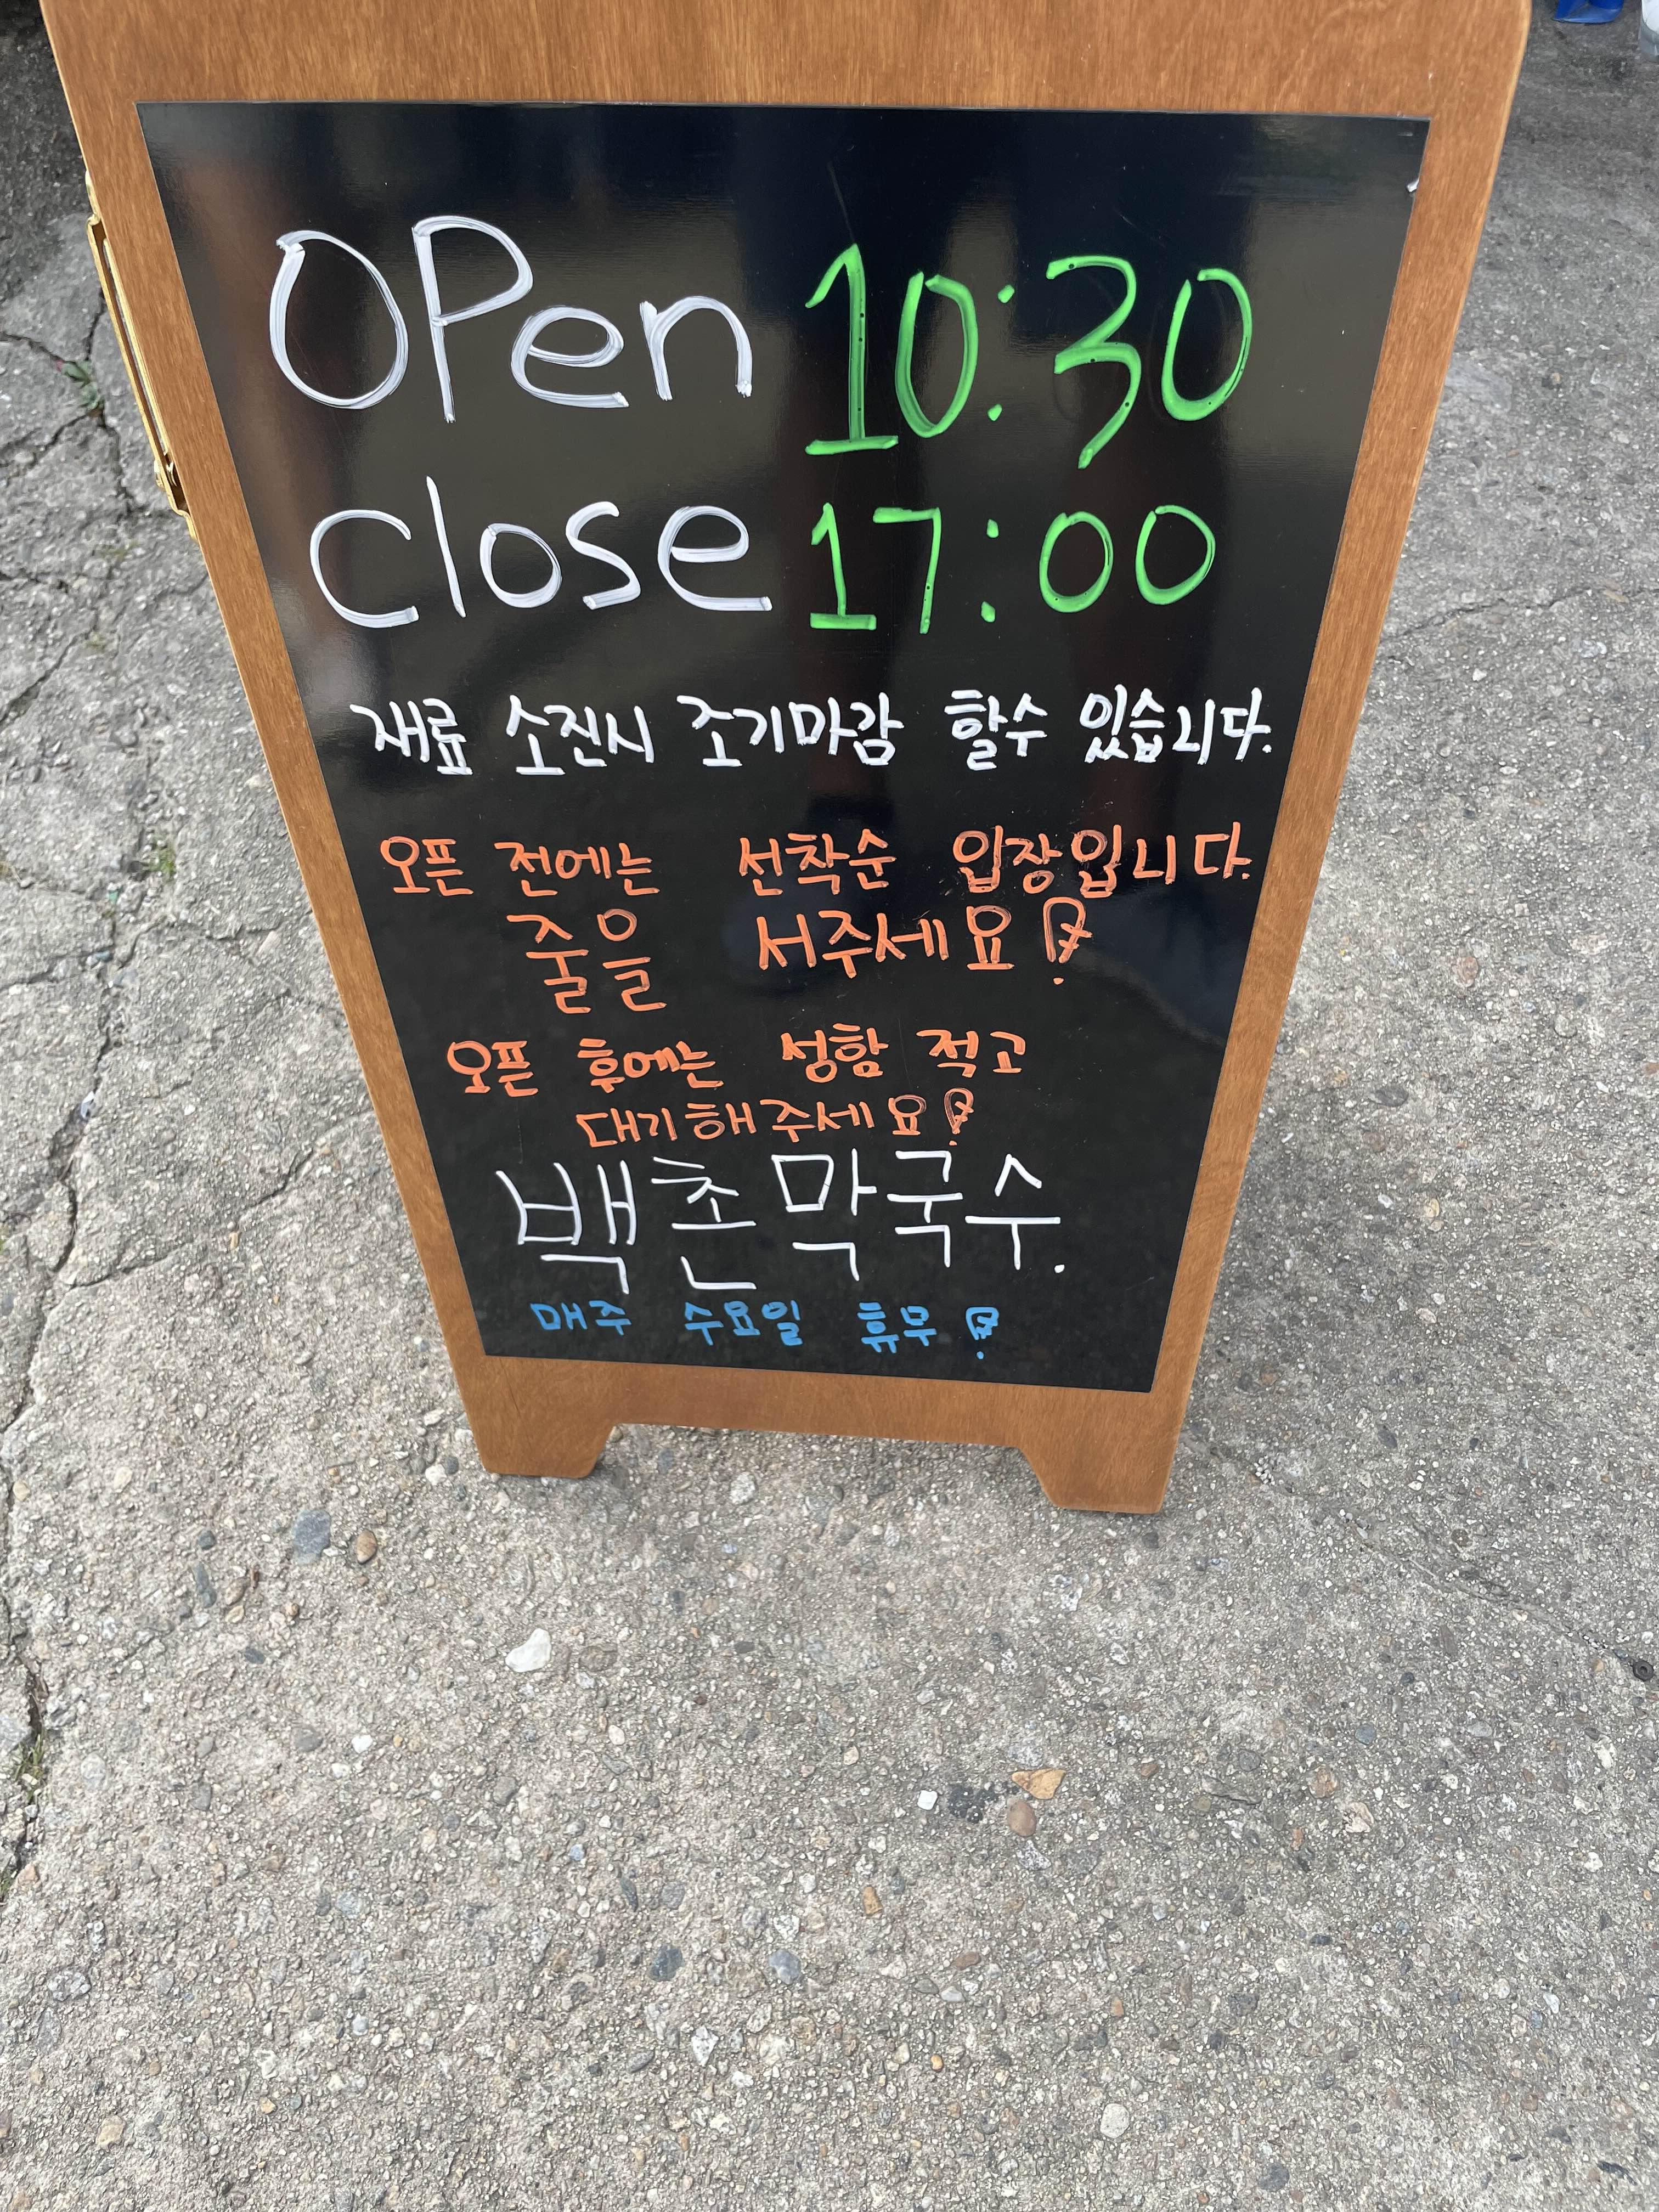 OPen 10:30
Close 17:00
재료 소진시 조기마감 할수 있습니다.
오픈 전에는 선착순 입장입니다.
줄을 서주세요!
오픈 후에는 성함 적고
대기해주세요!
백촌막국수.
매주 수요일 휴무!